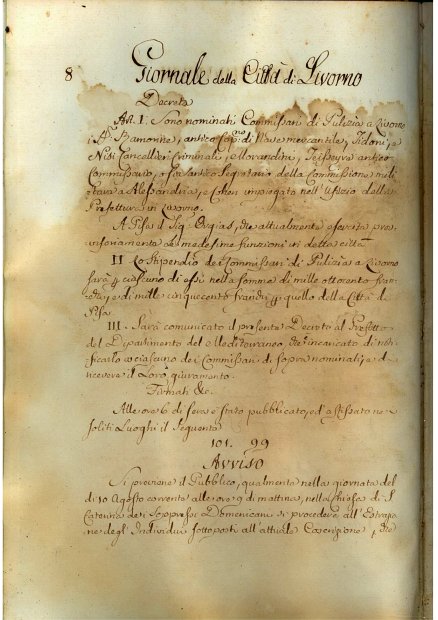 8 Giornale della Città di Livorno
Decreta
Art. I. Sono nominati Commissari di Pulizia a Livorno
i SS. Ramonne, antico Cap.no di Nave mercantile, Fidoni, e
Nisi Cancellieri Criminali, e Morandini, Teisseyre antico
Commissario, e Segretario della Commissione mili
tare a Alessandria, e Cohen impiegato nell'Ufizio della
Prefettura in Livorno.
A Pisa il Sig. che attualmente esercita prov
visoriamente le medesime funzioni in detta città
II Lo Stipendio dei Commissari di Pulizia a Livorno
sarà p ciascuno di essi nella somma di mille ottocento fran
chi, e di mille cinquecento franchi p quello della Città di
Pisa
III. Sarà comunicato il presente Decreto al Prefetto
del Dipartimento del Mediterraneo, che incaricato di noti
ficarlo a ciascuno dei Commissari di sopra nominati, e di
ricevere il Loro giuramento.
Firmati &c.
Alle ore 6 di sera è stato pubblicato, ed affissato ne
soliti Luoghi il seguente
101. 99
Avviso
Si previene il Pubblico, qualmente nella giornata del
dì 10 Agosto corrente alle ore 9 di mattina, nella Chiesa di S.
Caterina dei Soppressi Domenicani si procederà all'Estrazio
ne degl'Individui sottoposti all'attuale Coscrizione, che